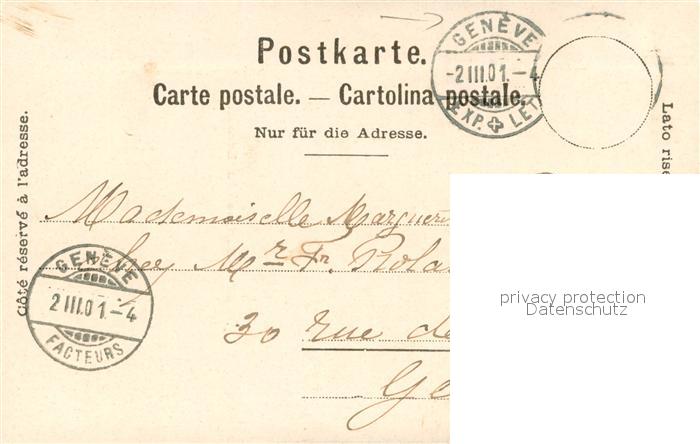 Postkarte.
Carte postale. — Cartolina postale.
Nur für die Adresse.
GENÈVE
-2 III.01.-4
EXP. LET
Côté réservé à l'adresse.
Lato rise
Mademoiselle Margueri
chez Mr Fr. Rola
30 rue de
Ge
GENÈVE
2 III.01.-4
FACTEURS
privacy protection
Datenschutz